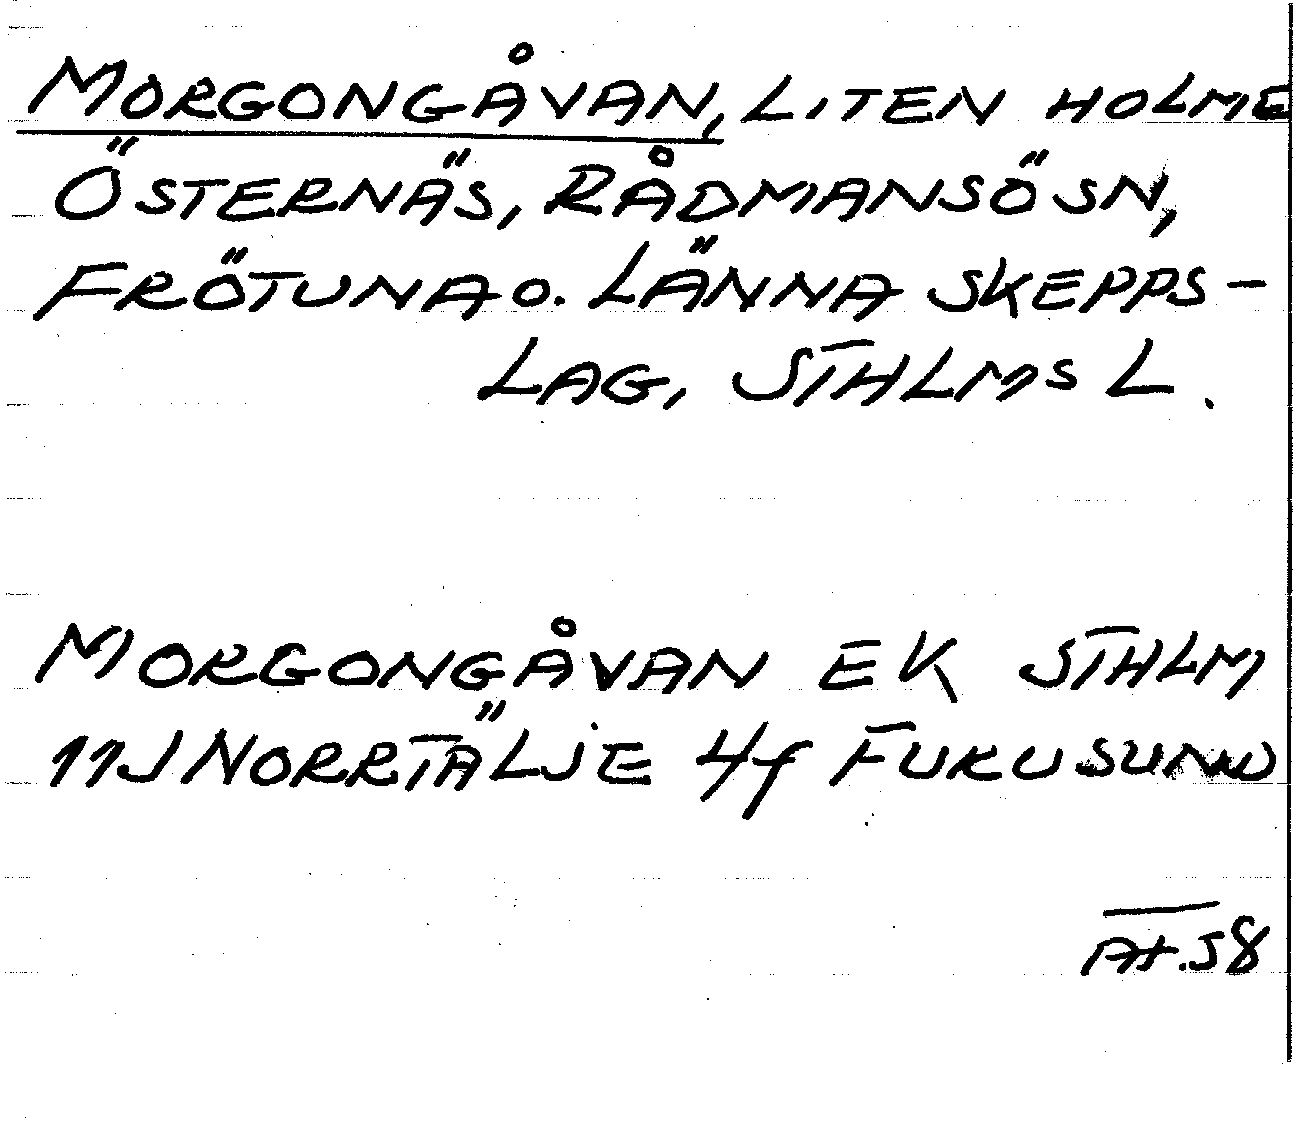 MORGONGÅVAN, LITEN HOLME
ÖSTERNÄS, RÅDMANSÖ SN,
FRÖTUNA O. LÄNNA SKEPPS-
LAG, STHLMS L.
MORGONGÅVAN EK STHLM
11J NORRTÄLJE 4f FURUSUND
At. 58